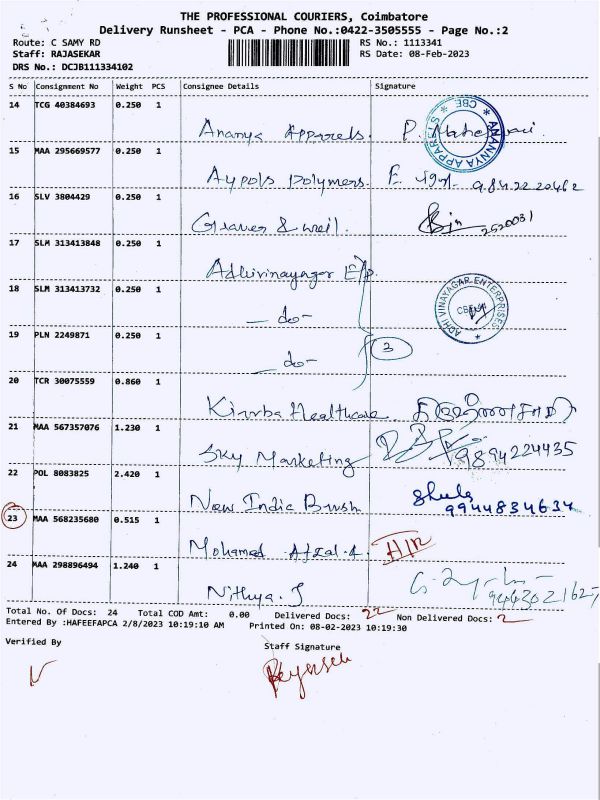 THE PROFESSIONAL COURIERS, Coimbatore
Delivery Runsheet - PCA - Phone No.:0422-3505555 - Page No.:2
Route: C SAMY RD RS No.: 1113341
Staff: RAJASEKAR RS Date: 08-Feb-2023
DRS No.: DCJB111334102
S No Consignment No Weight PCS Consignee Details Signature
14 TCG 40384693 0.250 1
Ananya Apparels. P.
ANANYA APPARELS * CBE *
15 MAA 295669577 0.250 1
Aypols Polymers.
16 SLV 3804429 0.250 1
Graver & weil. 2520031
17 SLM 313413848 0.250 1
Adhivinayagar E/p.
18 SLM 313413732 0.250 1
— do —
ADHI VINAYAGAR ENTERPRISES *
19 PLN 2249871 0.250 1
3
— do —
20 TCR 30075559 0.860 1
Kirrba Healthcare
21 MAA 567357076 1.230 1
Sky Marketing 9894224435
22 POL 8083825 2.420 1
New Indic Brush 9944834634
23 MAA 568235680 0.515 1
Mohamed Afzal.A
24 MAA 298896494 1.240 1
Nithya.J
Total No. Of Docs: 24 Total COD Amt: 0.00 Delivered Docs: 22 Non Delivered Docs: 2
Entered By :HAFEEFAPCA 2/8/2023 10:19:10 AM Printed On: 08-02-2023 10:19:30
Verified By Staff Signature